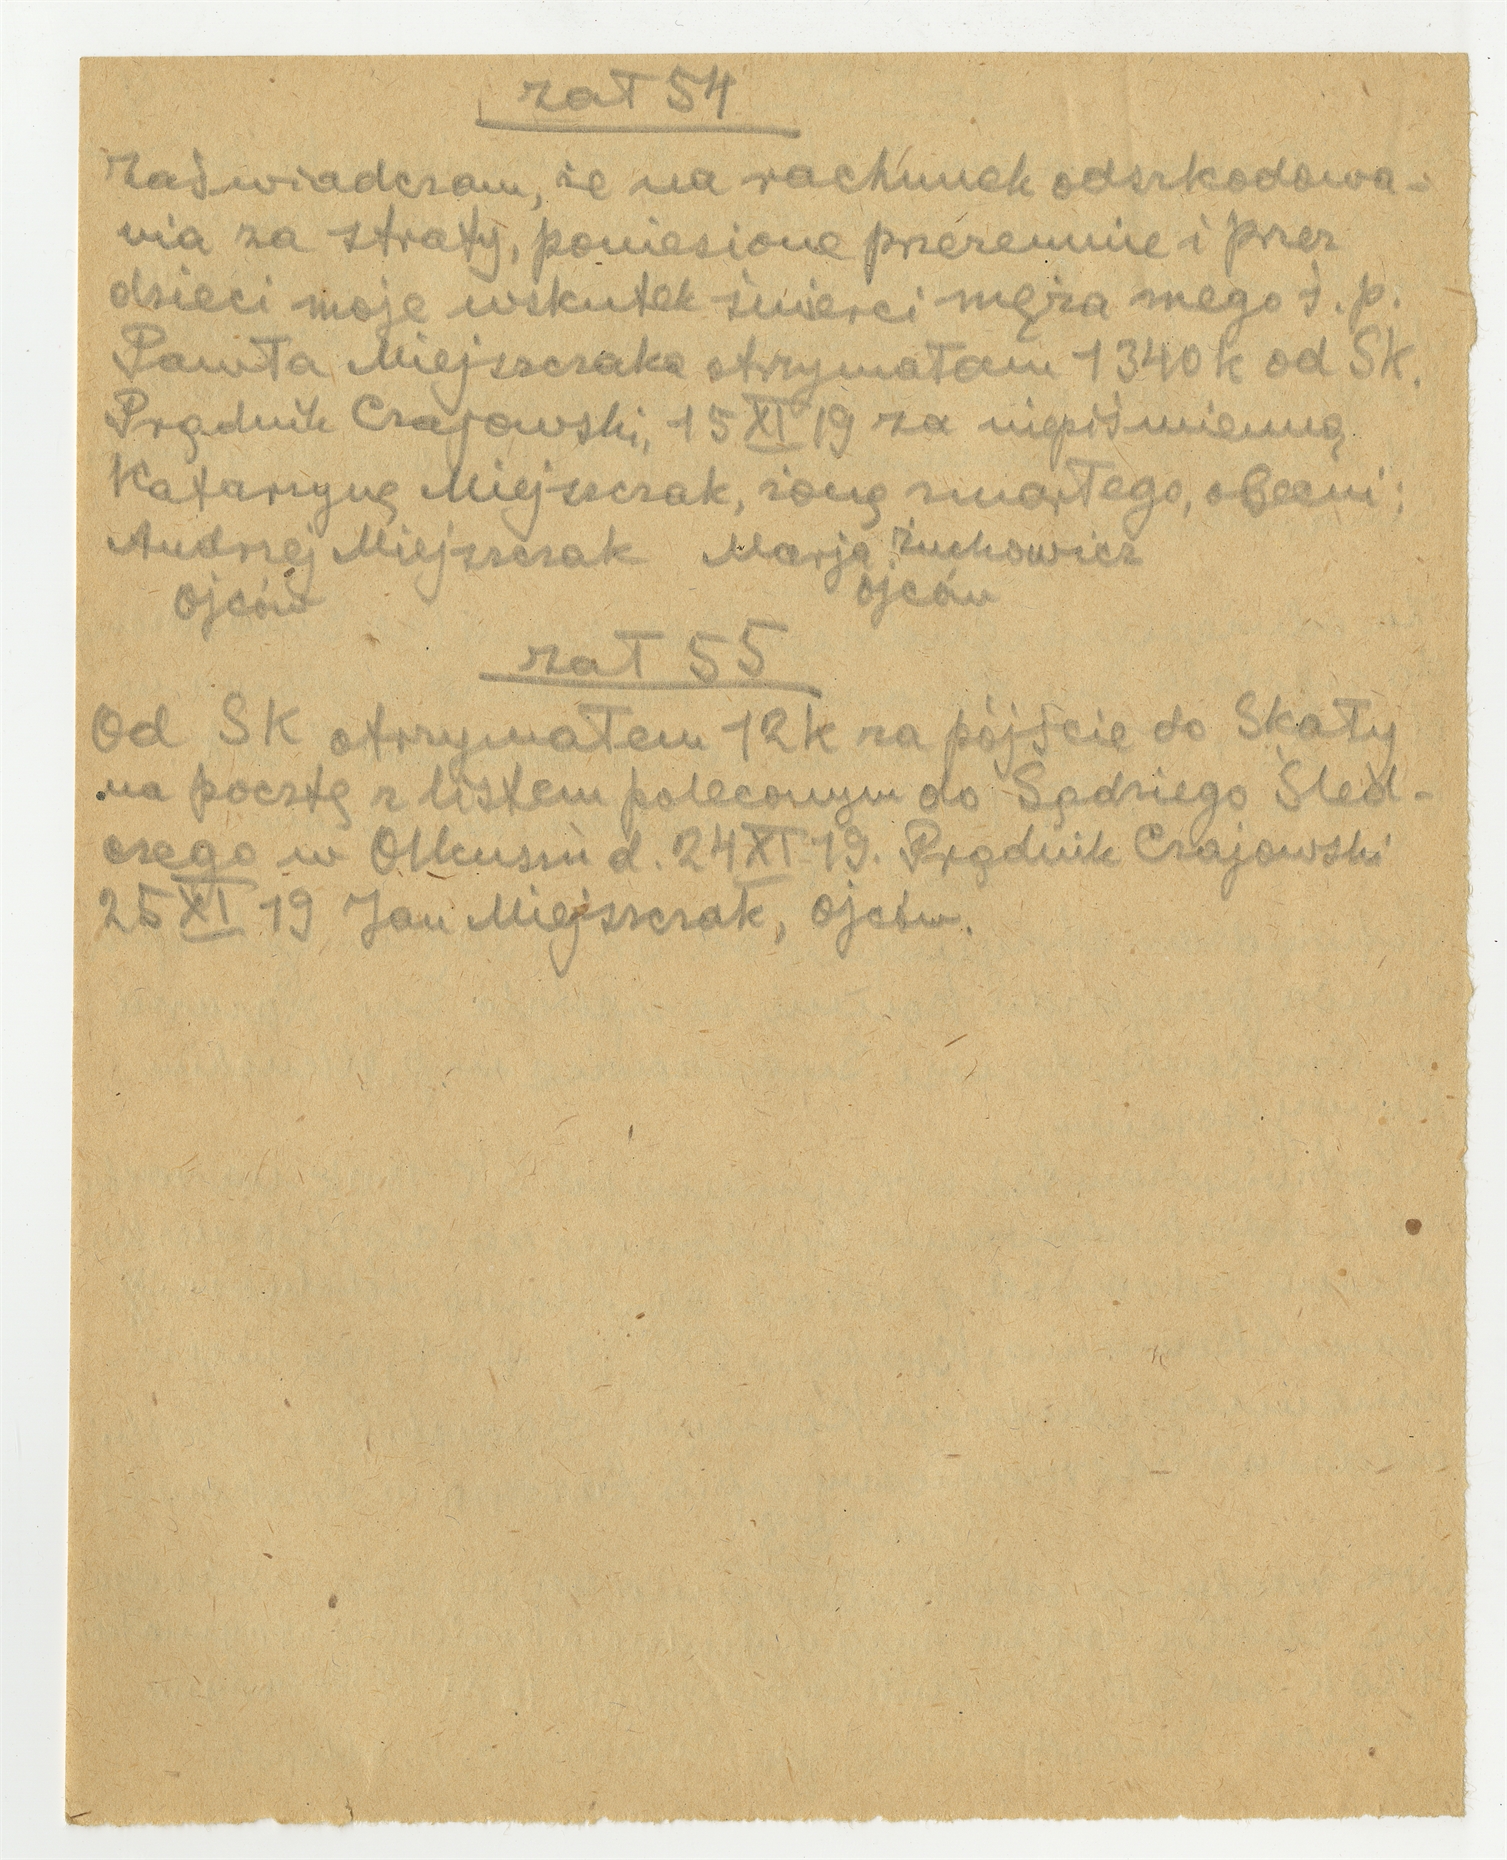 zał 54
Zaświadczam, że na rachunek odszkodowa-
nia za straty, poniesione przezemnie i przez
dzieci moje wskutek śmierci męża mego ś.p.
Pawła Miejszczaka otrzymałam 1340 k od SK.
Prądnik Czajowski, 15 XI 19 za niepiśmienną
Katarzynę Miejszczak, żonę zmarłego, obecni:
Andrzej Miejszczak Marja Żuchowicz
Ojców Ojców
zał 55
Od SK otrzymałem 12 k za pójście do Skały
na pocztę z listem poleconym do Sędziego Śled-
czego w Olkuszu d. 24 XI 19. Prądnik Czajowski
25 XI 19 Jan Miejszczak, Ojców.